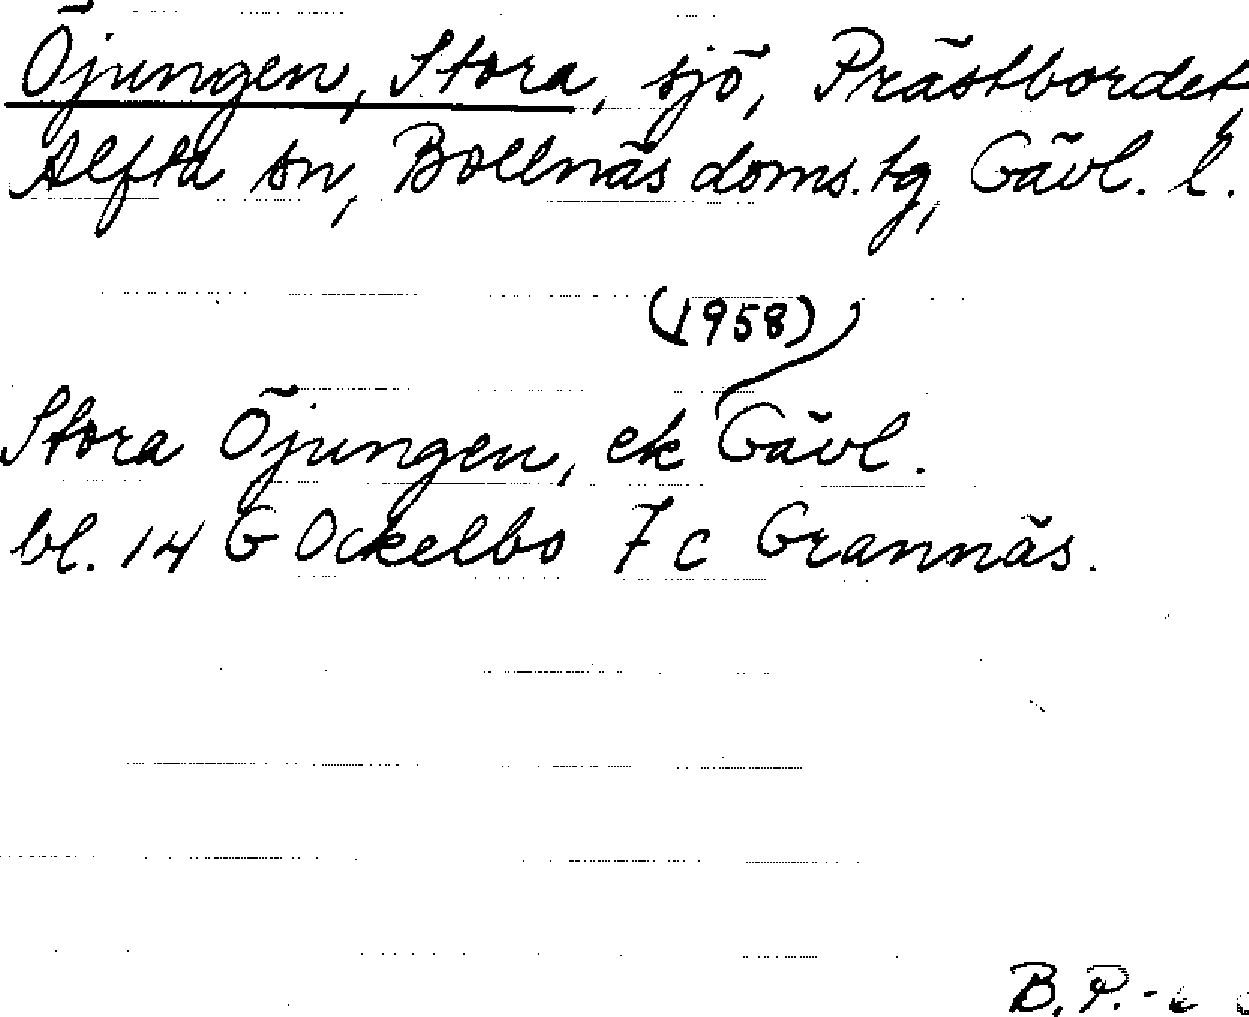 Öjungen, Stora, sjö, Prästbordet,
Alfta sn, Bollnäs doms. tg, Gävl. l.
(1958)
Stora Öjungen, ek Gävl.
bl. 14 G Ockelbo 7 c Grannäs.
B. P. -